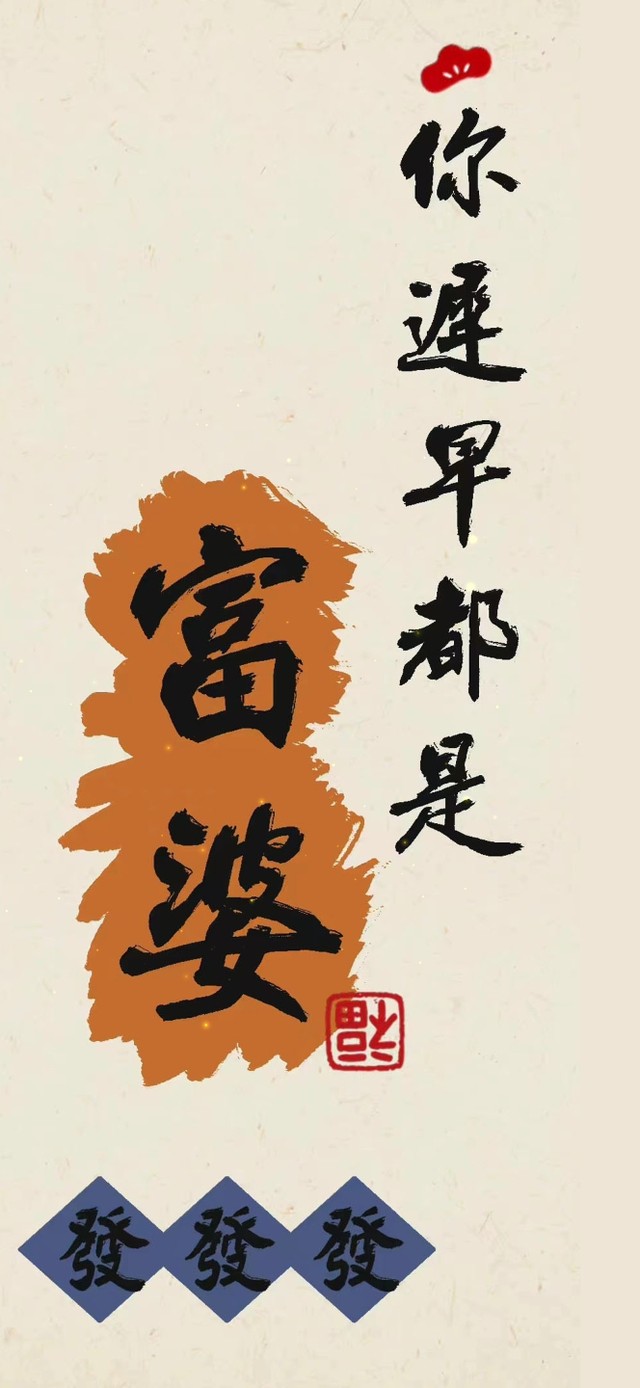 你遲早都是
富婆
福
發發發